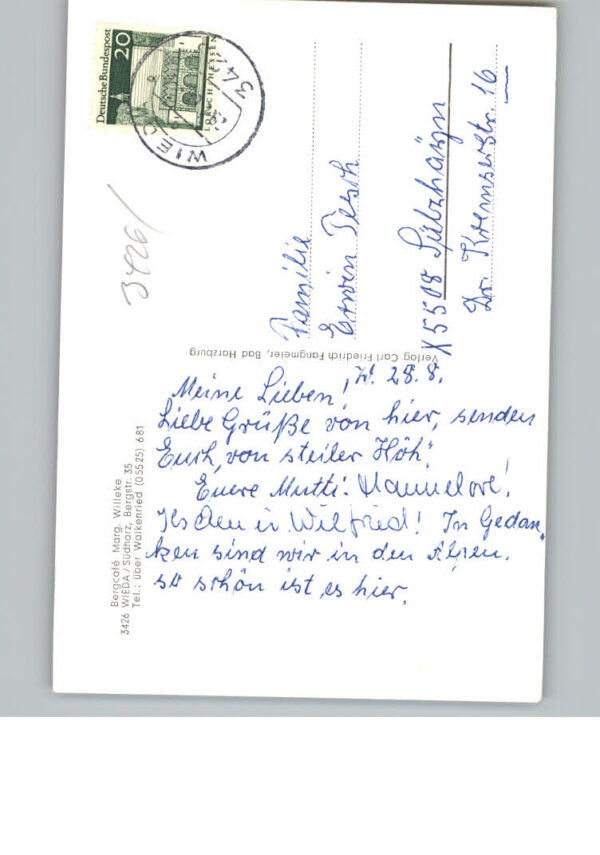 Bergcafé Marg. Willeke
3426 WIEDA/Südharz, Bergstr. 35
Tel.: über Walkenried (05525) 681
Meine Lieben! 28.8.
Liebe Grüße von hier, senden
Euch, von steiler Höh'.
Euere Mutti. Hannelore!
Wilfried! In Gedan-
ken sind wir in den Alpen.
so schön ist es hier.
Verlag Carl Friedrich Fangmeier, Bad Harzburg
Deutsche Bundespost
20
LORSCH/HESSEN
WIEDA
342
3426/
Familie
Erwin Tesch
X5508 Sülzhayn
Dr. Kremserstr. 16